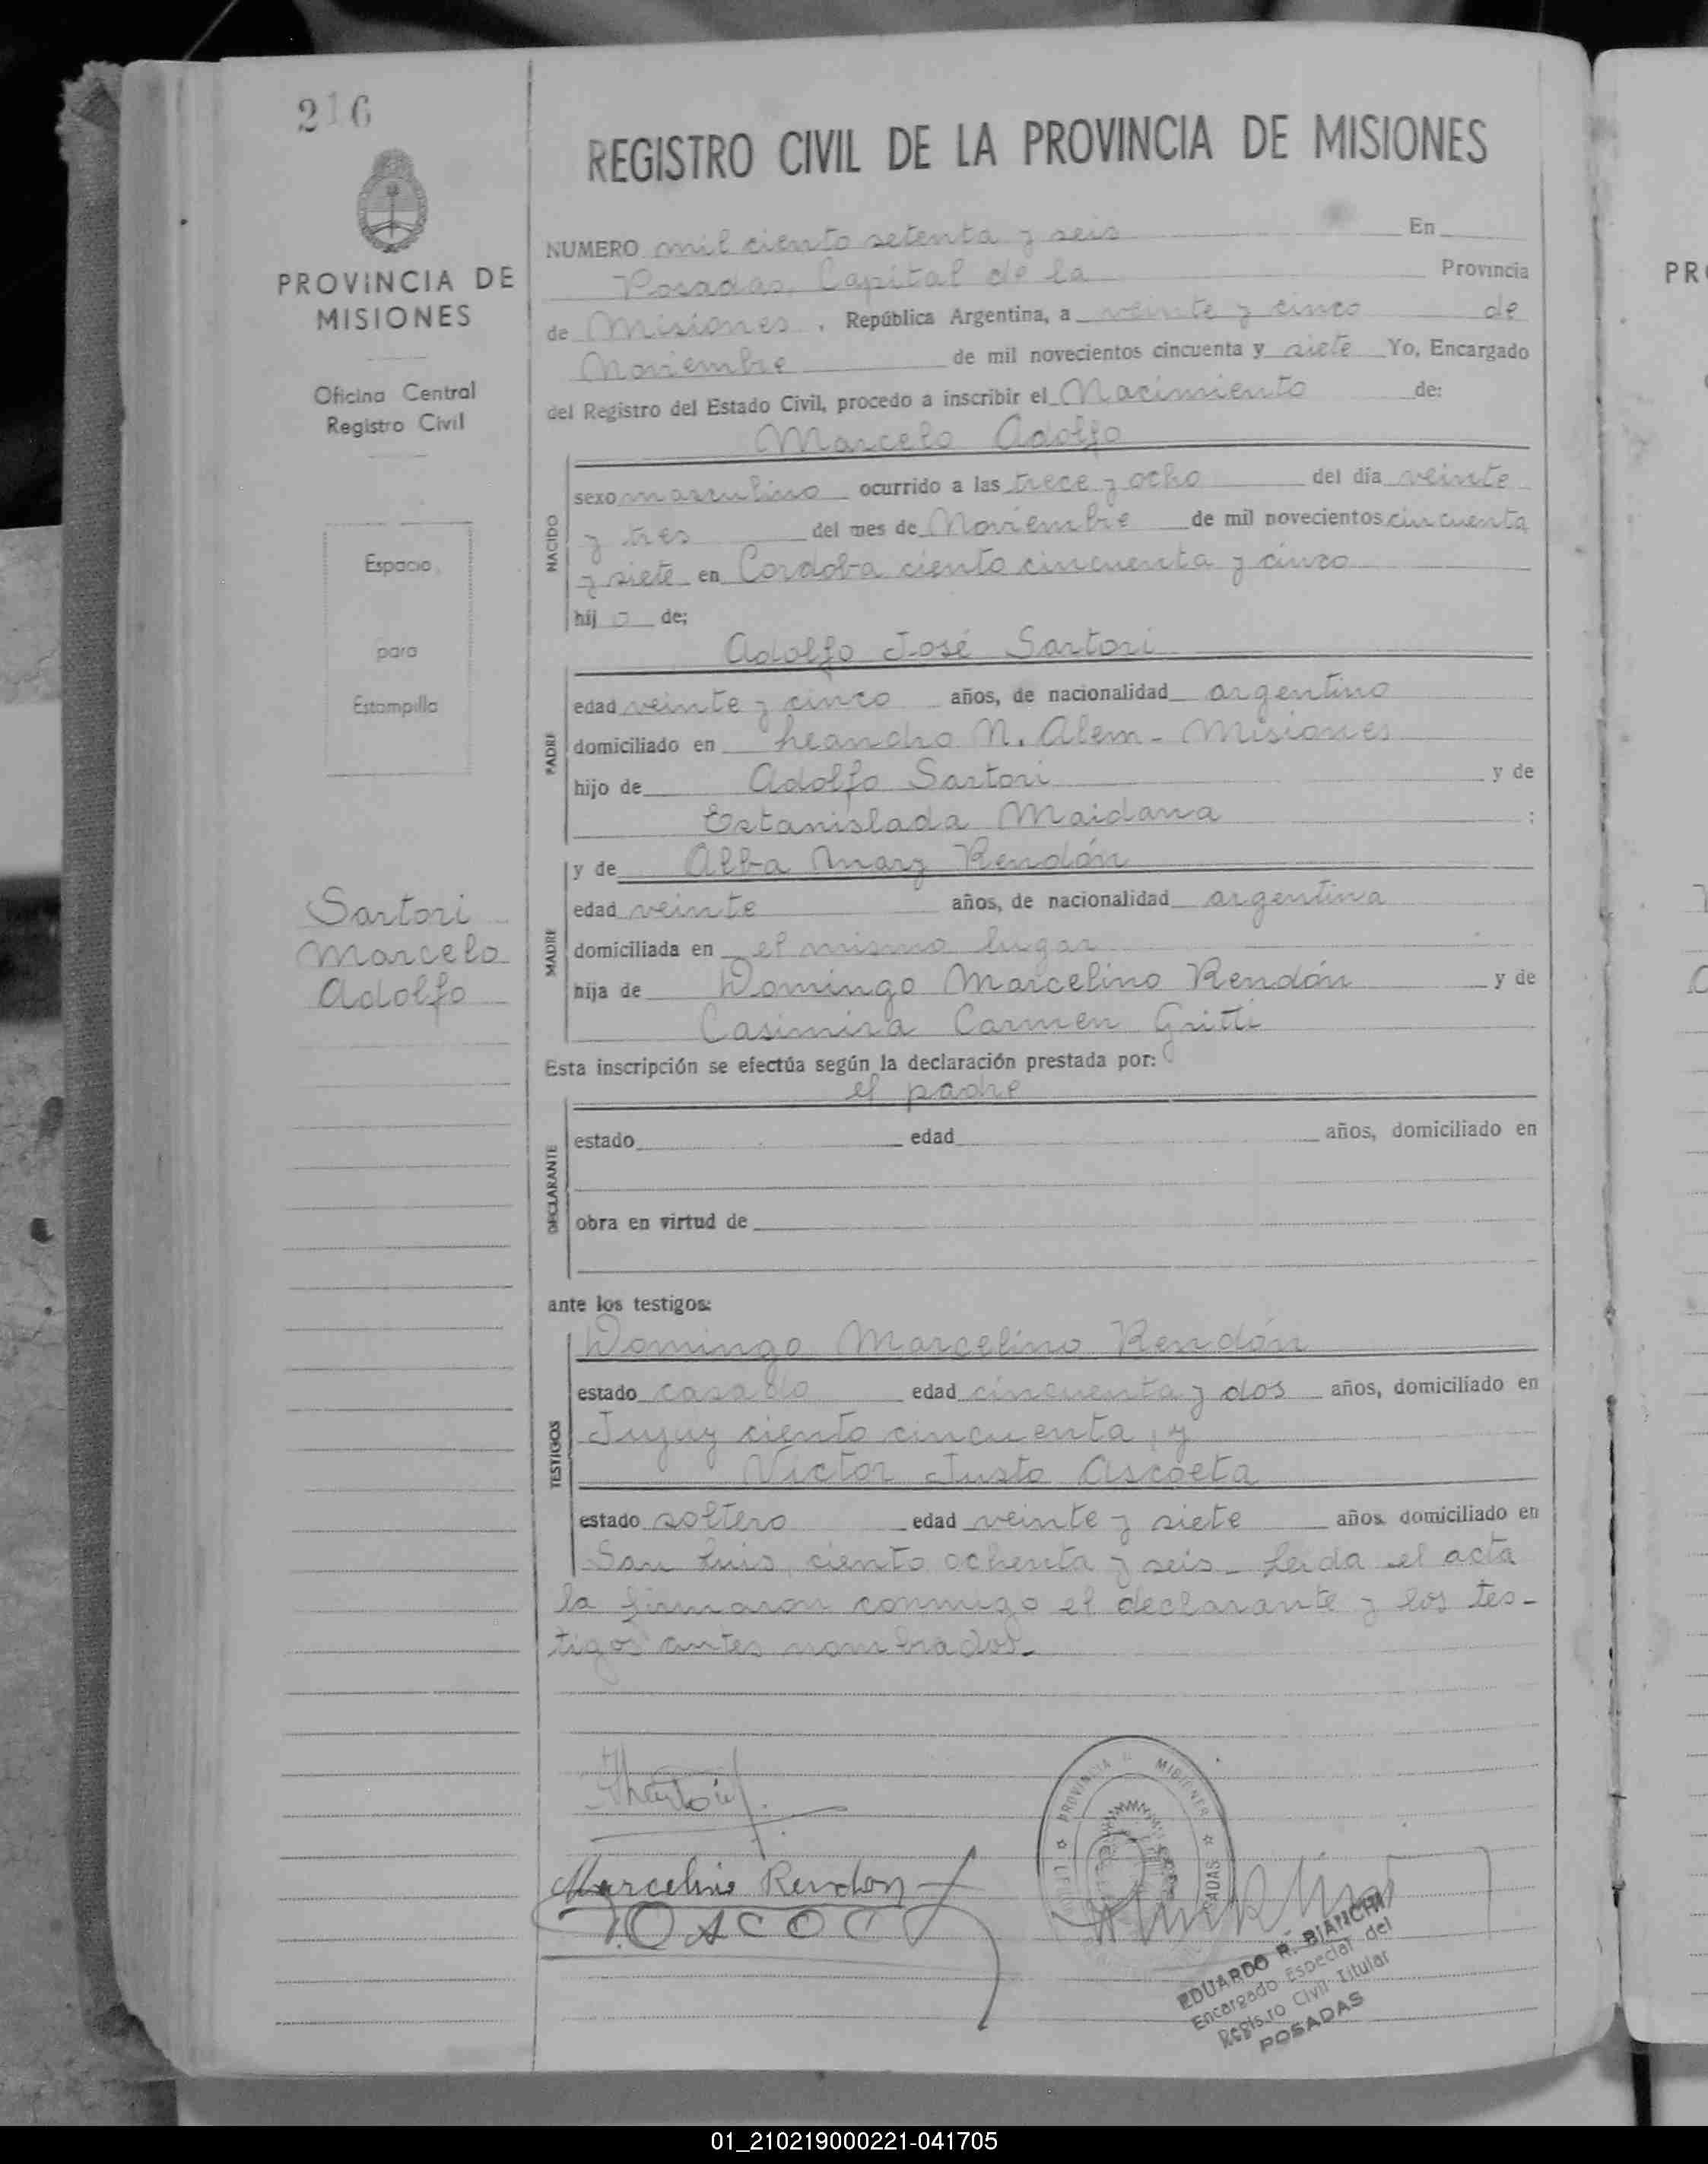 216
REGISTRO CIVIL DE LA PROVINCIA DE MISIONES
PROVINCIA DE
MISIONES
Oficina Central
Registro Civil
Espacio
para
Estampilla
Sartori
Marcelo
Adolfo
NUMERO mil ciento setenta y seis En
Posadas, Capital de la Provincia
de Misiones, República Argentina, a veinte y cinco de
Noviembre de mil novecientos cincuenta y siete Yo, Encargado
del Registro del Estado Civil, procedo a inscribir el Nacimiento de:
Marcelo Adolfo
NACIDO
sexo masculino ocurrido a las trece y ocho del día veinte
y tres del mes de Noviembre de mil novecientos cincuenta
y siete en Cordoba ciento cincuenta y cinco
hij o de;
Adolfo José Sartori
PADRE
edad veinte y cinco años, de nacionalidad argentino
domiciliado en Leandro N. Alem - Misiones
hijo de Adolfo Sartori y de
Estanislada Maidana ;
y de Alba Mary Rendón
MADRE
edad veinte años, de nacionalidad argentina
domiciliada en el mismo lugar
hija de Domingo Marcelino Rendón y de
Casimira Carmen Gritti
Esta inscripción se efectúa según la declaración prestada por:
el padre
DECLARANTE
estado edad años, domiciliado en
obra en virtud de
ante los testigos:
Domingo Marcelino Rendón
TESTIGOS
estado casado edad cincuenta y dos años, domiciliado en
Jujuy ciento cincuenta, y
Victor Justo Ascoeta
estado soltero edad veinte y siete años domiciliado en
San Luis, ciento ochenta y seis - Leida el acta
la firmaron conmigo el declarante y los tes-
tigos antes nombrados.-
Marcelino Rendon
PROVINCIA MISIONES
POSADAS
EDUARDO R. BIANCHI
Encargado Especial del
Registro Civil Titular
POSADAS
PR
01_210219000221-041705